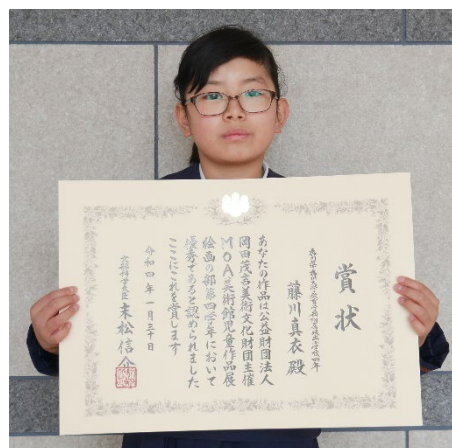 賞状
藤川真衣殿
あなたの作品は公益財団法人
岡田茂吉美術文化財団主催
MOA美術館児童作品展
絵画の部第四学年において
優秀であると認められました
ここにこれを賞します
令和四年一月三十日
文部科学大臣 末松信介